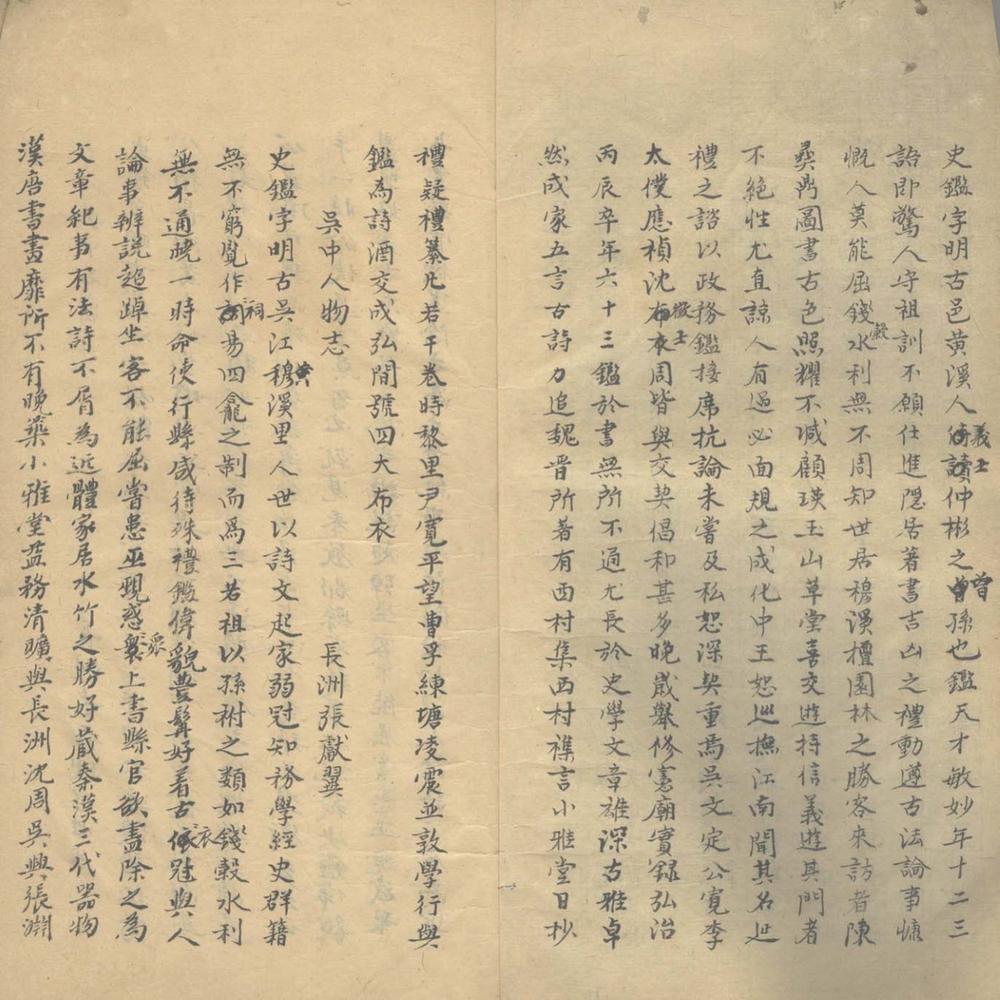 史鑑字明古邑黃溪人義士仲彬之曾孫也鑑天才敏妙年十二三
詒即驚人守祖訓不願仕進隱居著書吉凶之禮動遵古法論事慷
慨人莫能屈錢穀水利無不周知世居穆溪擅園林之勝客來訪者陳
彞鼎圖書古色照耀不減顧瑛玉山草堂喜交遊持信義遊其門者
不絕性尤直諒人有過必面規之成化中王恕巡撫江南聞其名延
禮之諮以政務鑑接席抗論未嘗及私恕深契重焉吳文定公寬李
太僕應禎沈徵士周皆與交契倡和甚多晚歲舉修憲廟實録弘治
丙辰卒年六十三鑑於書無所不通尤長於史學文章雄深古雅卓
然成家五言古詩力追魏晉所著有西村集西村襍言小雅堂日抄
禮疑禮纂凡若干卷時黎里尹寬平望曹孚練塘凌震並敦學行與
鑑為詩酒交成弘間號四大布衣
吳中人物志 長洲張獻翼
史鑑字明古吳江黃溪里人世以詩文起家弱冠知務學經史群籍
無不窮覽作祠易四龕之制而爲三若祖以孫祔之類如錢穀水利
無不通曉一時命使行縣咸待殊禮鑑偉貌豊髯好着古衣冠與人
論事辨説超踔坐客不能屈嘗患巫覡惑衆上書縣官欲盡除之為
文章紀事有法詩不屑為近體家居水竹之勝好蔵秦漢三代器物
漢唐書畫靡所不有晚築小雅堂益務清曠與長洲沈周吳興張淵